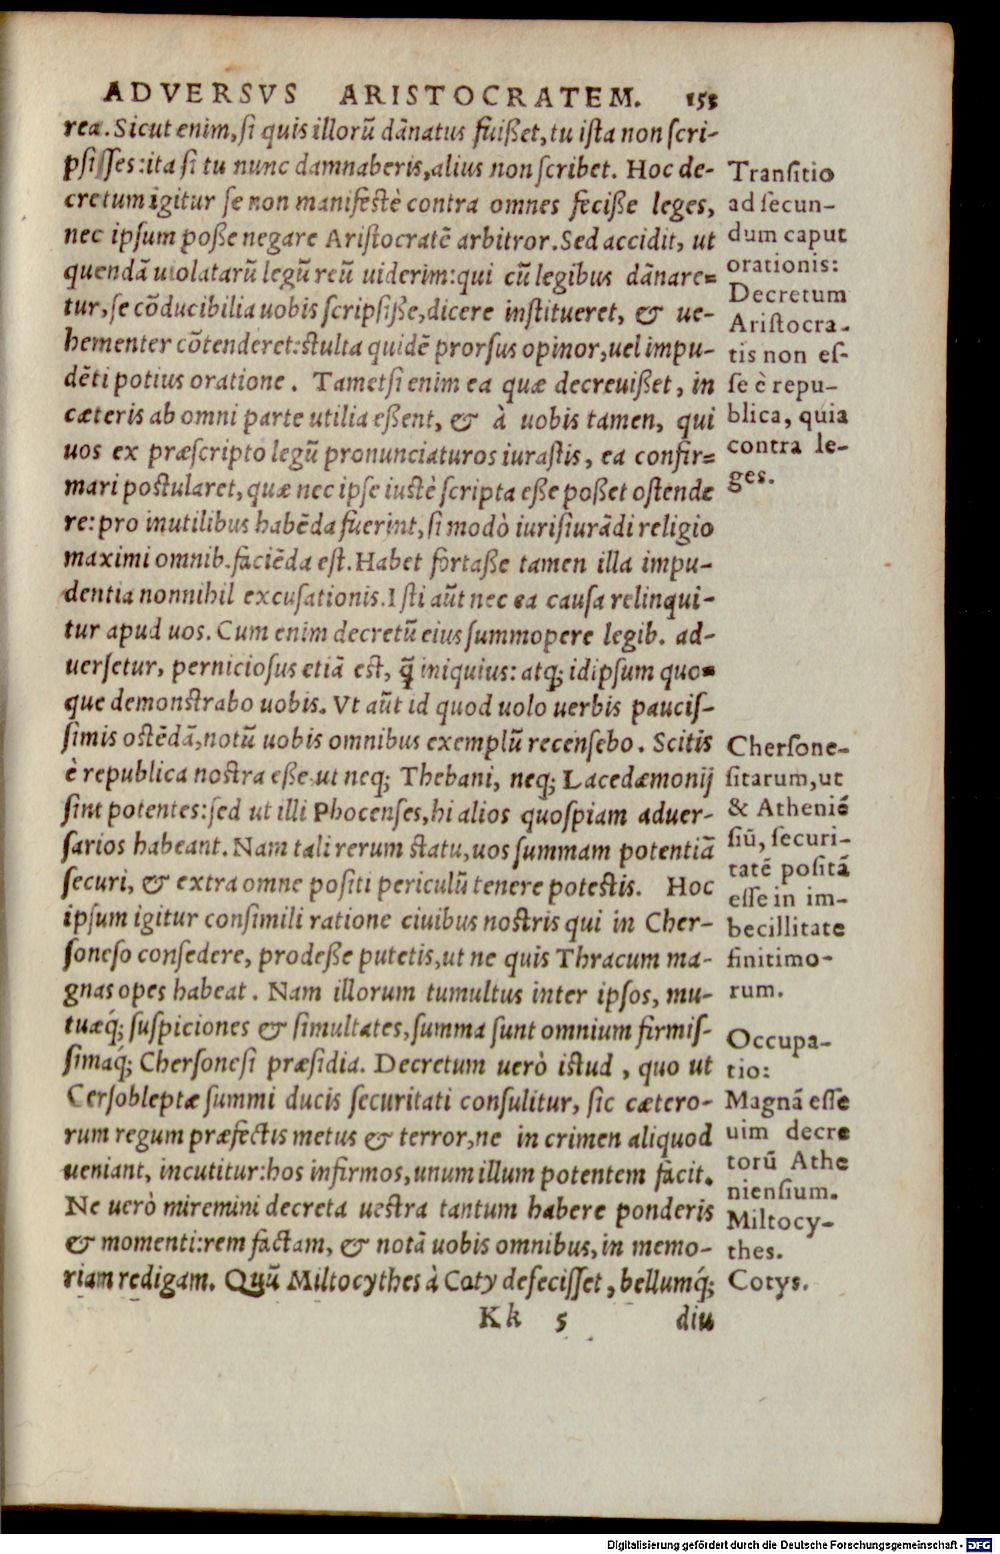 ADVERSVS ARISTOCRATEM. 153
rea. Sicut enim, si quis illorū dānatus fuißet, tu ista non scri-
psisses: ita si tu nunc damnaberis, alius non scribet. Hoc de-
cretum igitur se non manifestè contra omnes feciße leges,
nec ipsum poße negare Aristocratē arbitror. Sed accidit, ut
quendā uiolatarū legū reū uiderim: qui cū legibus dānare=
tur, se cōducibilia uobis scripsiße, dicere institueret, & ue-
hementer cōtenderet: stulta quidē prorsus opinor, uel impu-
dēti potius oratione. Tametsi enim ea quæ decreuißet, in
cæteris ab omni parte utilia eßent, & à uobis tamen, qui
uos ex præscripto legū pronunciaturos iurastis, ea confir=
mari postularet, quæ nec ipse iustè scripta eße poßet ostende
re: pro inutilibus habēda fuerint, si modò iurisiurādi religio
maximi omnib. faciēda est. Habet fortaße tamen illa impu-
dentia nonnihil excusationis. Isti aūt nec ea causa relinqui-
tur apud uos. Cum enim decretū eius summopere legib. ad-
uersetur, perniciosus etiā est, q̄ iniquius: atq; idipsum quo=
que demonstrabo uobis. Vt aūt id quod uolo uerbis paucis-
simis ostēdā, notū uobis omnibus exemplū recensebo. Scitis
è republica nostra eße ut neq; Thebani, neq; Lacedæmonij
sint potentes: sed ut illi Phocenses, hi alios quospiam aduer-
sarios habeant. Nam tali rerum statu, uos summam potentiā
securi, & extra omne positi periculū tenere potestis. Hoc
ipsum igitur consimili ratione ciuibus nostris qui in Cher-
soneso consedere, prodeße putetis, ut ne quis Thracum ma-
gnas opes habeat. Nam illorum tumultus inter ipsos, mu-
tuæq́; suspiciones & simultates, summa sunt omnium firmis-
simaq́; Chersonesi præsidia. Decretum uerò istud, quo ut
Cersobleptæ summi ducis securitati consulitur, sic cætero-
rum regum præfectis metus & terror, ne in crimen aliquod
ueniant, incutitur: hos infirmos, unum illum potentem facit.
Ne uerò miremini decreta uestra tantum habere ponderis
& momenti: rem factam, & notā uobis omnibus, in memo-
riam redigam. Quū Miltocythes à Coty defecisset, bellumq́;
Kk 5 diu
Transitio
ad secun-
dum caput
orationis:
Decretum
Aristocra-
tis non es-
se è repu-
blica, quia
contra le-
ges.
Chersone-
sitarum, ut
& Atheniē
siū, securi-
tatē positā
esse in im-
becillitate
finitimo-
rum.
Occupa-
tio:
Magnā esse
uim decre
torū Athe
niensium.
Miltocy-
thes.
Cotys.
Digitalisierung gefördert durch die Deutsche Forschungsgemeinschaft - DFG